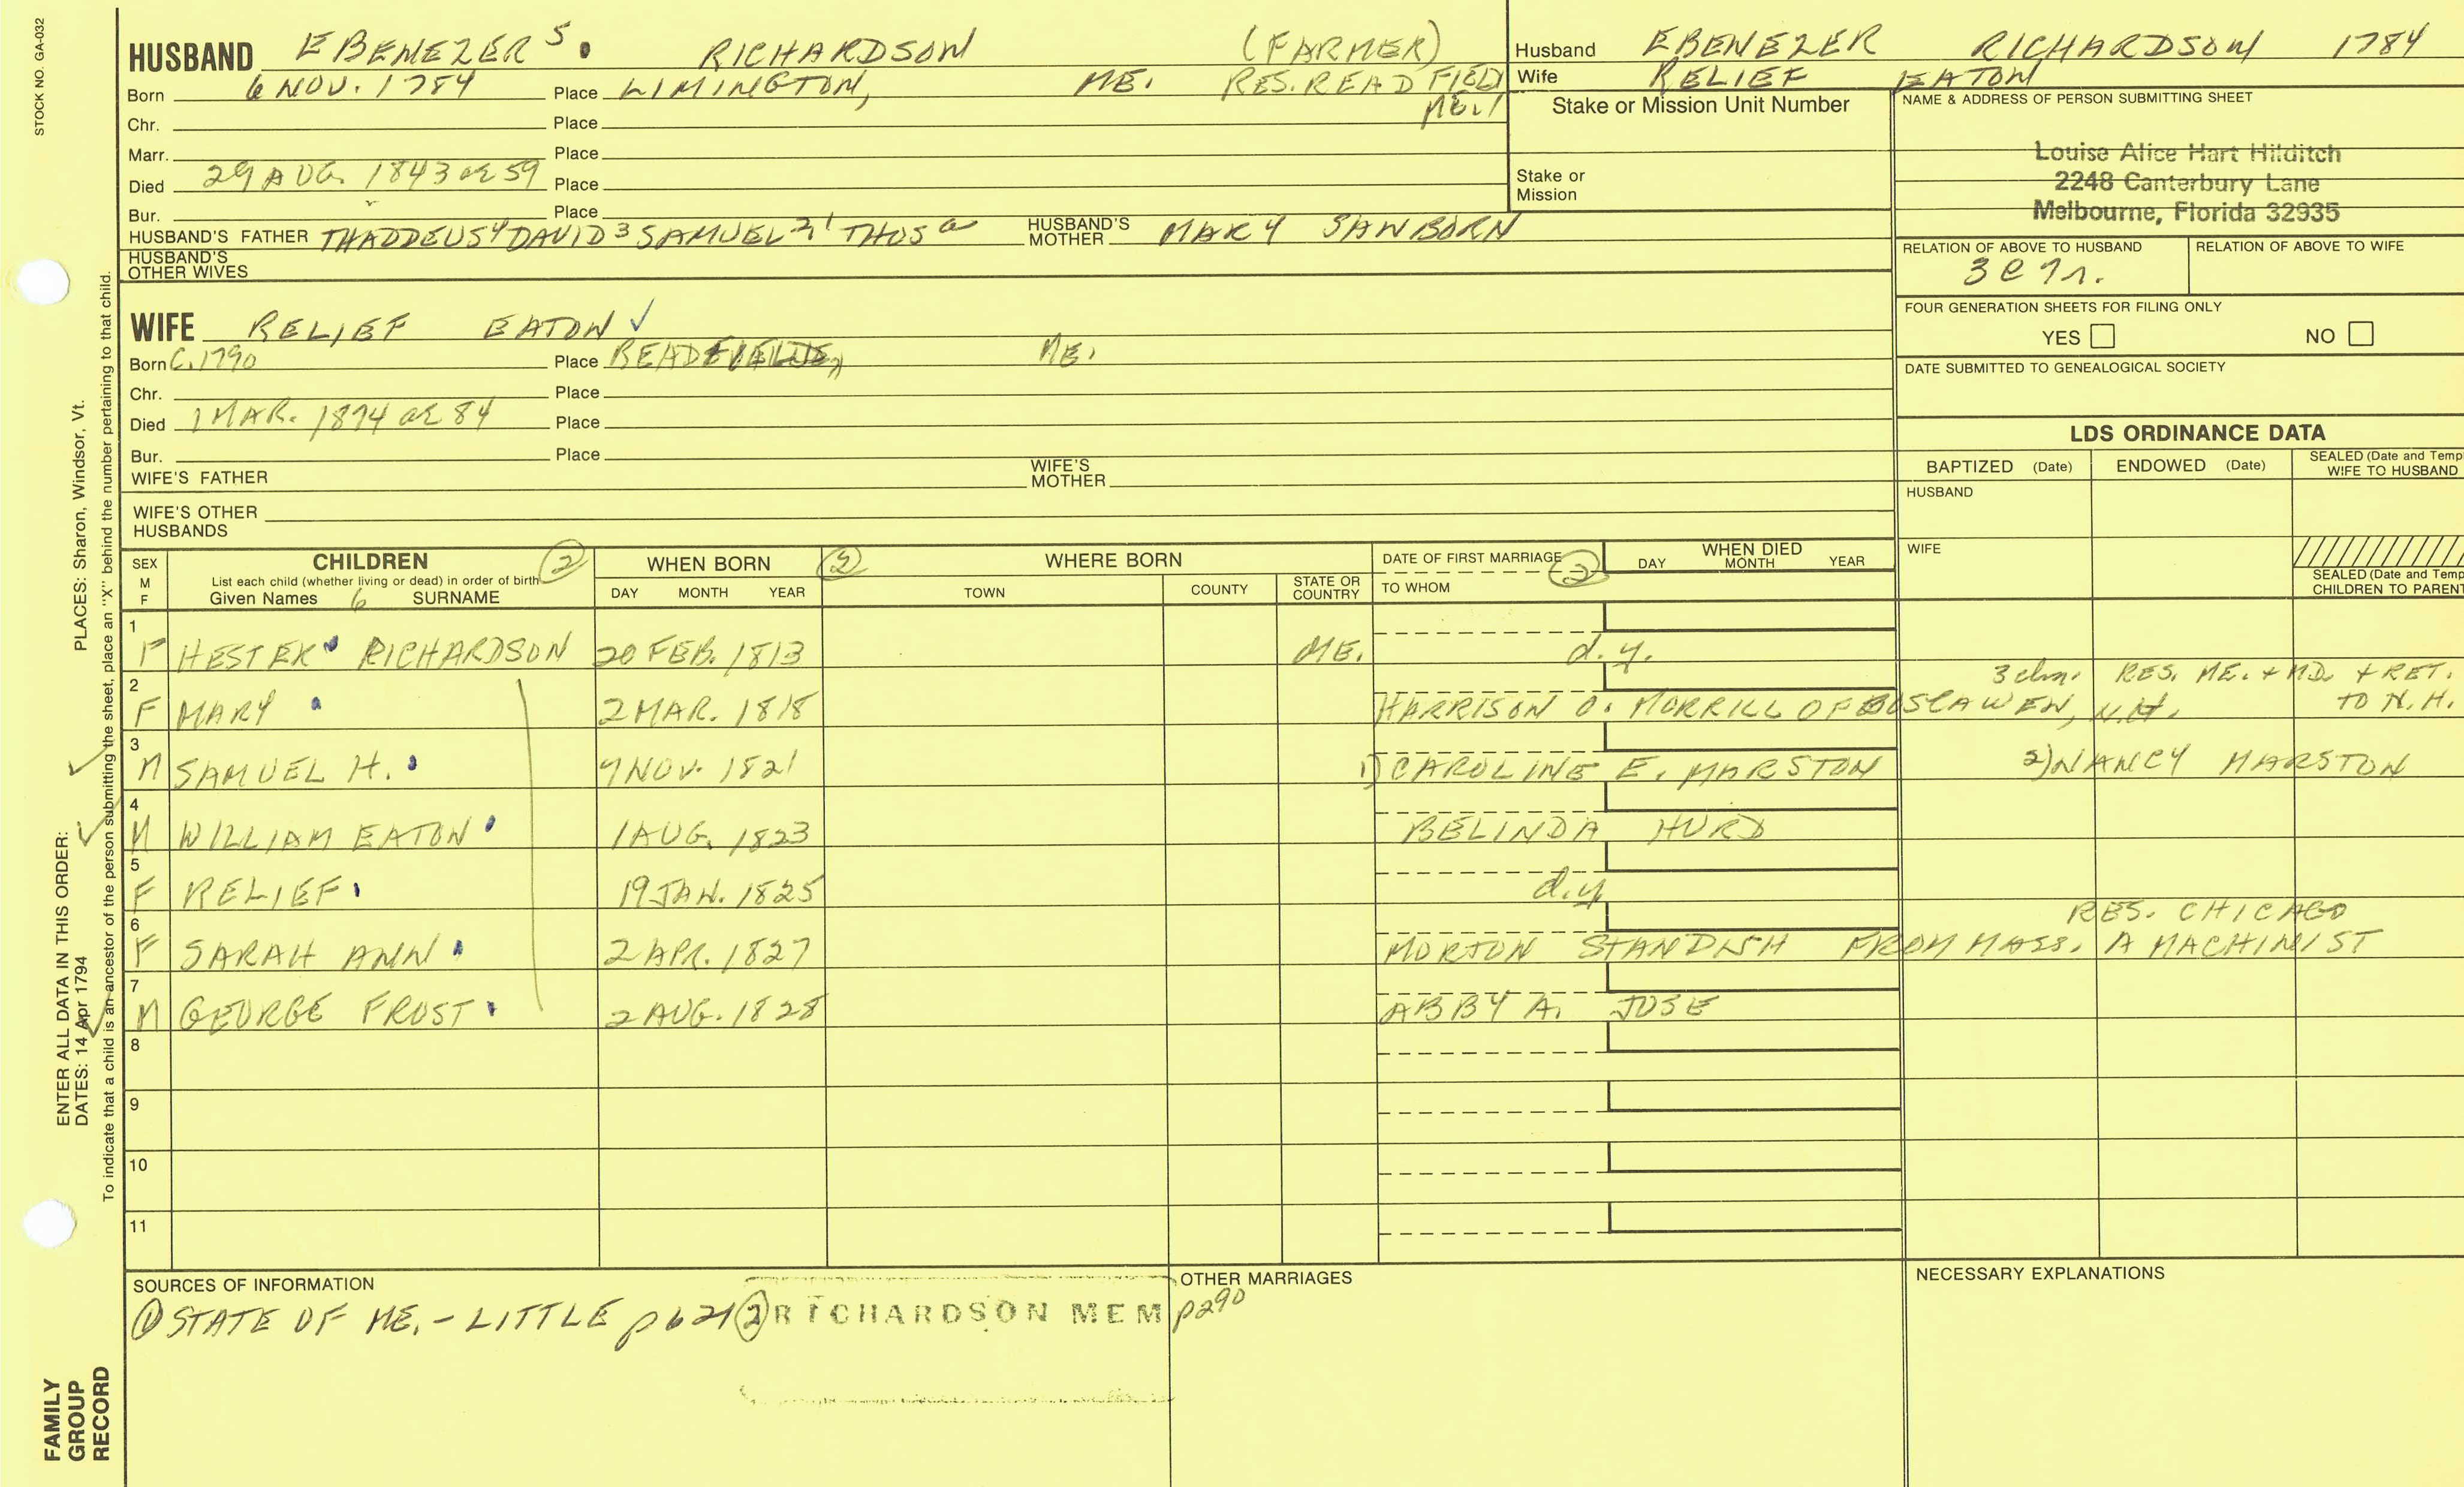 STOCK NO. GA-032
HUSBAND EBENEZER 5. RICHARDSON (FARMER)
Born 6 NOV. 1784 Place LIMINGTON, ME. RES. READFIELD
ME.)
Chr. Place
Marr. Place
Died 29 AUG. 1843 ae 59 Place
Bur. Place
HUSBAND'S FATHER THADDEUS 4 DAVID 3 SAMUEL 2 THOS 1 HUSBAND'S MOTHER MARY SANBORN
HUSBAND'S OTHER WIVES
Husband EBENEZER RICHARDSON 1784
Wife RELIEF EATON
Stake or Mission Unit Number
Stake or
Mission
NAME & ADDRESS OF PERSON SUBMITTING SHEET
Louise Alice Hart Hilditch
2248 Canterbury Lane
Melbourne, Florida 32935
RELATION OF ABOVE TO HUSBAND RELATION OF ABOVE TO WIFE
FOUR GENERATION SHEETS FOR FILING ONLY
YES NO
DATE SUBMITTED TO GENEALOGICAL SOCIETY
WIFE RELIEF EATON ✓
Born C. 1790 Place READFIELD, ME.
Chr. Place
Died 1 MAR. 1874 ae 84 Place
Bur. Place
WIFE'S FATHER WIFE'S MOTHER
WIFE'S OTHER
HUSBANDS
LDS ORDINANCE DATA
BAPTIZED (Date) ENDOWED (Date) SEALED (Date and Temp
WIFE TO HUSBAND
HUSBAND
WIFE
SEALED (Date and Temp
CHILDREN TO PARENT
SEX
M
F
CHILDREN 2
List each child (whether living or dead) in order of birth
Given Names 6 SURNAME
WHEN BORN 2
DAY MONTH YEAR
WHERE BORN
TOWN COUNTY STATE OR COUNTRY
DATE OF FIRST MARRIAGE 2
TO WHOM
WHEN DIED
DAY MONTH YEAR
1
F HESTER RICHARDSON 20 FEB. 1813 ME. d.y.
2 3 chn. RES. ME. + MD. + RET.
F MARY 2 MAR. 1818 HARRISON O. MORRILL OF BOSCAWEN, N.H. TO N.H.
3
M SAMUEL H. 7 NOV. 1821 1) CAROLINE E. MARSTON 2) NANCY MARSTON
4
M WILLIAM EATON 1 AUG. 1823 BELINDA HURD
5
F RELIEF 19 JAN. 1825 d.y.
6 RES. CHICAGO
F SARAH ANN 2 APR. 1827 MORTON STANDISH FROM MASS. A MACHINIST
7
M GEORGE FROST 2 AUG. 1828 ABBY A. JOSE
8
9
10
11
SOURCES OF INFORMATION
① STATE OF ME. - LITTLE p 621 ② RICHARDSON MEM p290
OTHER MARRIAGES
NECESSARY EXPLANATIONS
PLACES: Sharon, Windsor, Vt.
ENTER ALL DATA IN THIS ORDER:
DATES: 14 Apr 1794
To indicate that a child is an ancestor of the person submitting the sheet, place an "X" behind the number pertaining to that child.
FAMILY
GROUP
RECORD